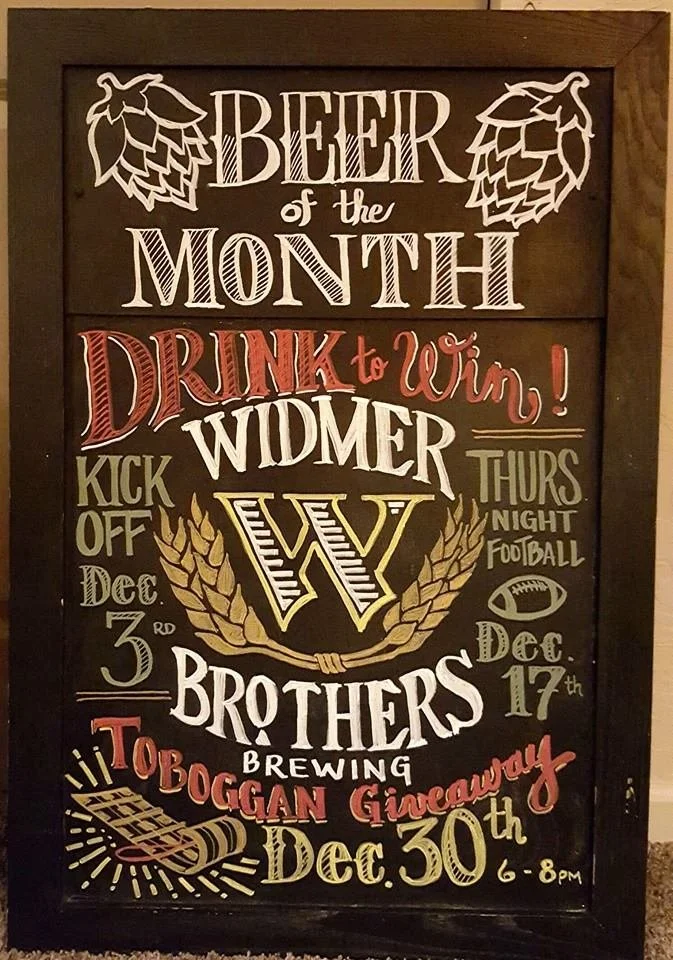 BEER
of the
MONTH
DRINK to Win!
WIDMER
KICK
OFF
Dec.
3RD
W
THURS
NIGHT
FOOTBALL
Dec.
17th
BROTHERS
BREWING
TOBOGGAN Giveaway
Dec. 30th
6-8PM